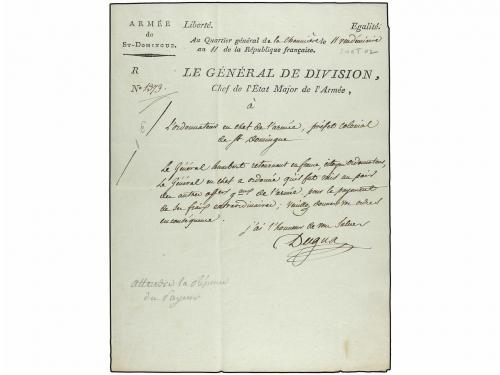 ARMÉE
de
ST-DOMINGUE.
Liberté.
Egalité.
Au Quartier général de la Chaumière le 11 vendémiaire
au 11 de la République française.
R
N° 1373.
LE GÉNÉRAL DE DIVISION,
Chef de l'Etat Major de l'Armée,
à
L'ordonnateur en chef de l'armée, préfet colonial
de St Domingue
Le Général humbert retournant en france, citoyen ordonnateur,
le Général en chef a ordonné qu'il fut mis au pair
des autres offers gaux de l'armée, pour le payement
de ses fraix extraordinaires. Veuillez donner vos ordres
en conséquence.
j'ai l'honneur de vous saluer
Dugua
attendre la Réponse
du Payeur